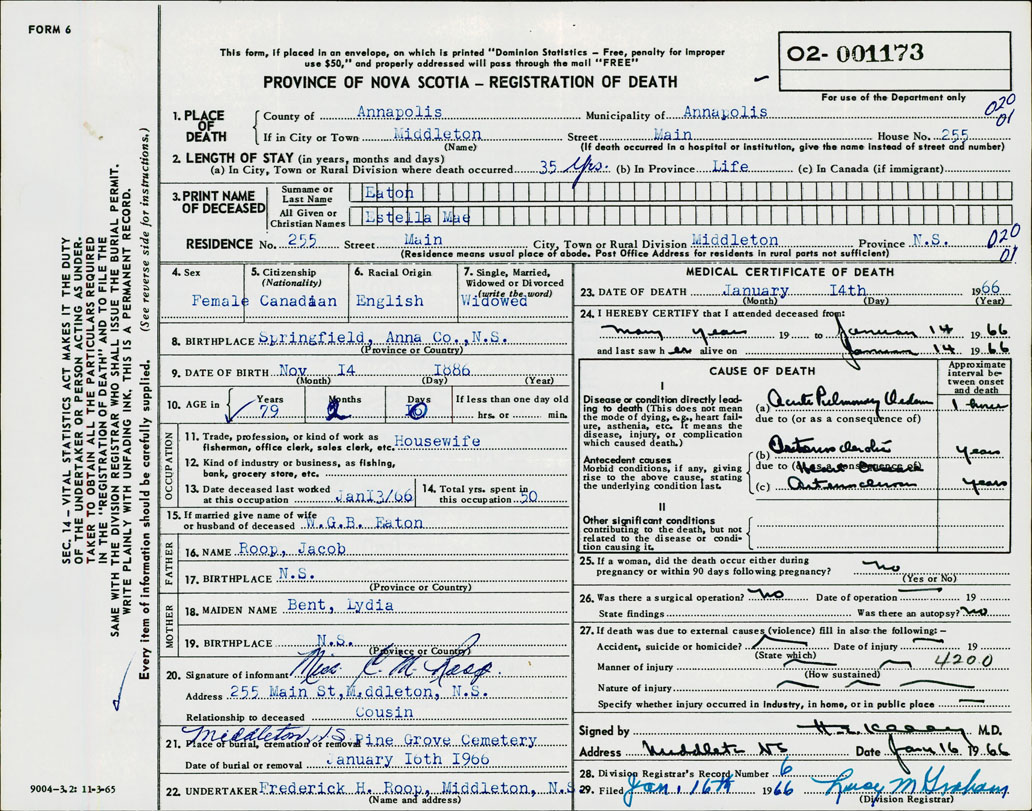 FORM 6
This form, if placed in an envelope, on which is printed "Dominion Statistics – Free, penalty for improper
use $50," and properly addressed will pass through the mail "FREE"
PROVINCE OF NOVA SCOTIA – REGISTRATION OF DEATH
02- 001173
For use of the Department only
020
01
1. PLACE OF DEATH
County of Annapolis Municipality of Annapolis
If in City or Town Middleton Street Main House No. 255
(Name) (If death occurred in a hospital or institution, give the name instead of street and number)
2. LENGTH OF STAY (in years, months and days)
(a) In City, Town or Rural Division where death occurred 35 yrs. (b) In Province Life (c) In Canada (if immigrant)
3. PRINT NAME OF DECEASED
Surname or Last Name Eaton
All Given or Christian Names Estella Mae
RESIDENCE No. 255 Street Main City, Town or Rural Division Middleton Province N.S.
020
01
(Residence means usual place of abode. Post Office Address for residents in rural parts not sufficient)
4. Sex
Female
5. Citizenship
(Nationality)
Canadian
6. Racial Origin
English
7. Single, Married,
Widowed or Divorced
(write the word)
Widowed
8. BIRTHPLACE Springfield, Anna Co., N.S.
(Province or Country)
9. DATE OF BIRTH Nov 14 1886
(Month) (Day) (Year)
10. AGE in
Years
79
Months
2
Days
If less than one day old
hrs. or min.
OCCUPATION
11. Trade, profession, or kind of work as
fisherman, office clerk, sales clerk, etc. Housewife
12. Kind of industry or business, as fishing,
bank, grocery store, etc.
13. Date deceased last worked
at this occupation Jan13/66
14. Total yrs. spent in
this occupation 50
15. If married give name of wife
or husband of deceased W.G.B. Eaton
FATHER
16. NAME Roop, Jacob
17. BIRTHPLACE N.S.
(Province or Country)
MOTHER
18. MAIDEN NAME Bent, Lydia
19. BIRTHPLACE N.S.
(Province or Country)
20. Signature of informant Miss C. M. Roop.
Address 255 Main St, M.ddleton, N.S.
Relationship to deceased Cousin
21. Place of burial, cremation or removal Middleton, NS Pine Grove Cemetery
Date of burial or removal January 16th 1966
22. UNDERTAKER Frederick H. Roop, Middleton, N.S
(Name and address)
MEDICAL CERTIFICATE OF DEATH
23. DATE OF DEATH January 14th 1966
(Month) (Day) (Year)
24. I HEREBY CERTIFY that I attended deceased from:
many years 19 to January 14 1966
and last saw her alive on January 14 1966
CAUSE OF DEATH
Approximate
interval be-
tween onset
and death
I
Disease or condition directly lead-
ing to death (This does not
mean the mode of dying, e.g., heart fail-
ure, asthenia, etc. It means the
disease, injury, or complication
which caused death.)
(a) Acute Pulmonary Edema 1 hour
due to (or as a consequence of)
Antecedent causes
Morbid conditions, if any, giving
rise to the above cause, stating
the underlying condition last.
(b) years
due to (or as a consequence of)
(c) Arteriosclerosis years
II
Other significant conditions
contributing to the death, but not
related to the disease or condi-
tion causing it.
25. If a woman, did the death occur either during
pregnancy or within 90 days following pregnancy? no
(Yes or No)
26. Was there a surgical operation? no Date of operation 19
State findings Was there an autopsy? no
27. If death was due to external causes (violence) fill in also the following: –
Accident, suicide or homicide? Date of injury 19
(State which)
Manner of injury 4200
(How sustained)
Nature of injury
Specify whether injury occurred in industry, in home, or in public place
Signed by M.D.
Address Middleton NS Date Jan 16 1966
28. Division Registrar's Record Number 6
29. Filed Jan. 16th 1966 Lucy M Graham
(Division Registrar)
SEC. 14 – VITAL STATISTICS ACT MAKES IT THE DUTY
OF THE UNDERTAKER OR PERSON ACTING AS UNDER-
TAKER TO OBTAIN ALL THE PARTICULARS REQUIRED
IN THE "REGISTRATION OF DEATH" AND TO FILE THE
SAME WITH THE DIVISION REGISTRAR WHO SHALL ISSUE THE BURIAL PERMIT.
WRITE PLAINLY WITH UNFADING INK. THIS IS A PERMANENT RECORD.
Every item of information should be carefully supplied. (See reverse side for instructions.)
9004-3.2: 11-3-65